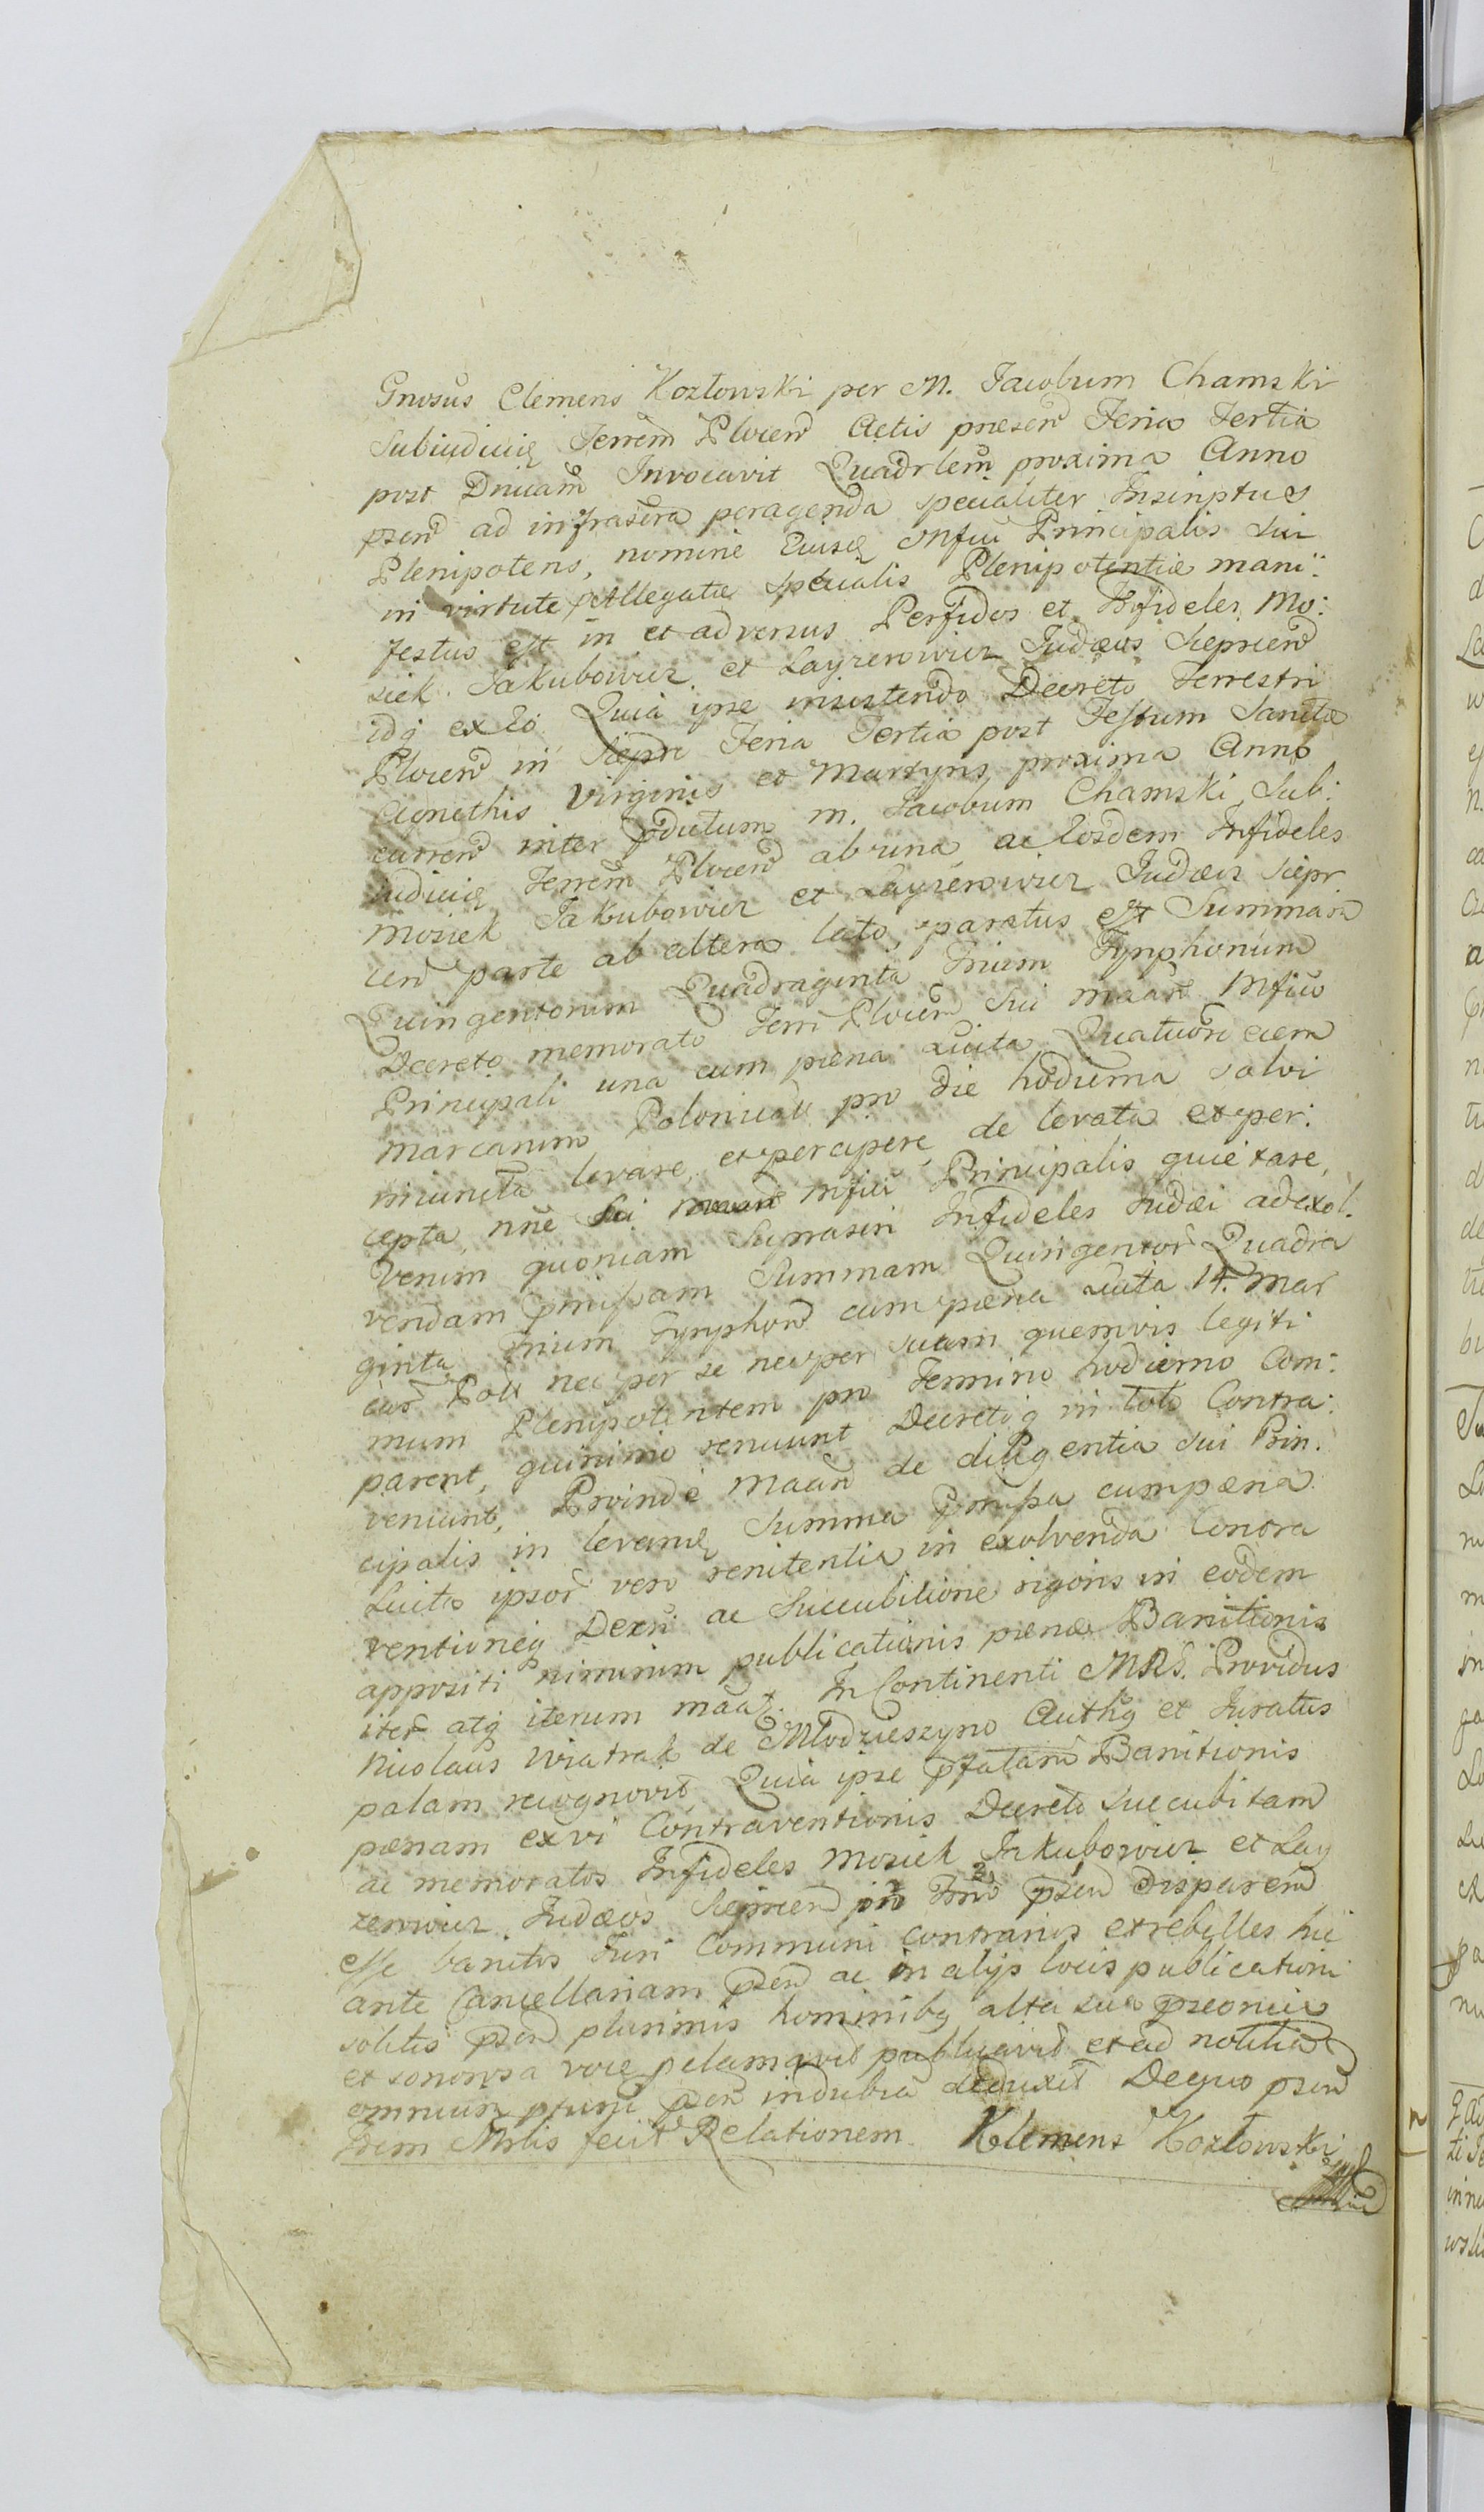 Gnosus Clemens Kozłowski per M. Jacobum Chamski
Subiudicię Terrem Plocen Actis præsen Feria Tertia
post Dnicam Invocavit Quadrlem proxima Anno
psen ad infrascra peragenda specialiter Inscriptus
Plenipotens, nomine Eiusq Mfici Principalis sui
in virtute Allegatæ specialis Plenipotentiæ mani:
festus est in et adversus Perfidos et Infideles Mo:
siek Jakubowicz et Layzerowicz Judæos Sieprcen
idq ex Eo Quia ipse insistendo Decreto Terrestri
Plocen in Siepre Feria Tertia post Festum Sanctæ
Agnethis Virginis et Martyris proxima Anno
curren inter pdictum M. Jacobum Chamski Sub:
iudicię Terrem Plocen ab una ac Eosdem Infideles
Mosiek Jakubowicz et Layzerowicz Judæos Siepr
cen parte ab altera lato, paratus est Summam
Quingentorum Quadraginta Trium Tynphonum
Decreto memorato Terri Plocen sui maan Mfico
Principali una cum pæna Luita Quatuordecem
Marcarum Polonicali pro die hodierna solvi
iniuncta levare et percipere, de levata et per:
cepta nne sui Mfici Principalis quietare,
Verum quoniam Suprascri Infideles Judæi ad exol:
vendam pmissam Summam Quingentor Quadra
ginta Trium Tynphon cum pæna Luita 14. Mar
car Poll nec per se nec per suum quemvis legiti
mum Plenipotentem pro Termino hodierno Com:
parent, quinimo renuunt Decretoq in toto Contra:
veniunt, Proinde Maan de diligentia sui Prin:
cipalis in levanę Summa pmissa cum pæna
Luito ipsor vero renitentia in exolvenda Contra
ventioneq Decri ac Succubitione rigoris in eodem
appositi nimirum publicationis pænæ Banitionis
iter atq iterum maat. In Continenti MRS. Providus
Nicolaus Wiatrak de Młodzieszyno Authq et Juratus
palam recognovit Quia ipse pfatam Banitionis
pænam ex vi Contraventionis Decreto succubitam
ac memoratos Infideles Mosiek Jakubowicz et Lay
zerowicz Judæos Sieprcen pro Trno psen disparen
esse banitos Juri Communi contrarios et rebelles hic
ante Cancellariam psen ac in alijs locis publicationi
solitis psen plurimis hominibq alta sua præonia
et sonorosa voce pclamavit publicavit et ad notitiã
omnium psen indubia deduxit De quo psen
Idem Mrlis fecit Relationem. Klemens Kozłowski